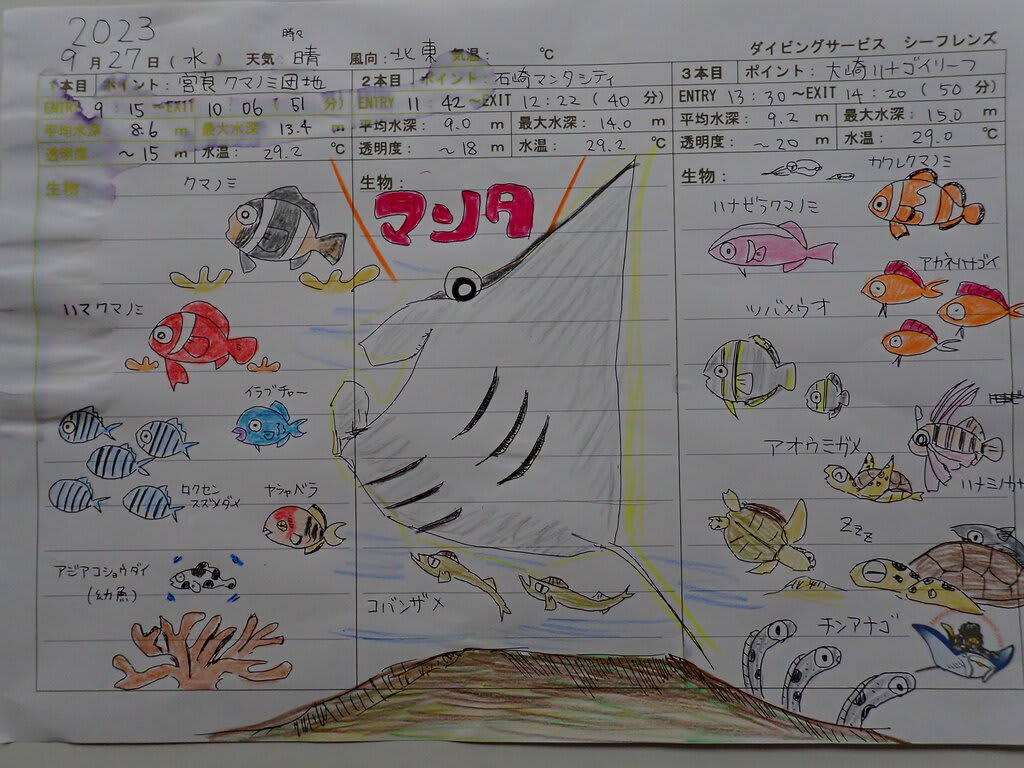 2023
9月27日(水) 天気: 時々晴 風向: 北東 気温: ℃
ダイビングサービス シーフレンズ
1本目 ポイント: 宮良クマノミ団地
ENTRY 9:15~EXIT 10:06(51分)
平均水深: 8.6 m 最大水深: 13.4 m
透明度: ~15 m 水温: 29.2 ℃
生物:
クマノミ
ハマクマノミ
イラブチャー
ロクセン
スズメダイ
ヤシャベラ
アジアコショウダイ
(幼魚)
2本目 ポイント: 石崎マンタシティ
ENTRY 11:42~EXIT 12:22(40分)
平均水深: 9.0 m 最大水深: 14.0 m
透明度: ~18 m 水温: 29.2 ℃
生物:
マンタ
コバンザメ
3本目 ポイント: 大崎ハナゴイリーフ
ENTRY 13:30~EXIT 14:20(50分)
平均水深: 9.2 m 最大水深: 15.0 m
透明度: ~20 m 水温: 29.0 ℃
生物:
カクレクマノミ
ハナビラクマノミ
アカネハナゴイ
ツバメウオ
アオウミガメ
ハナミノカサ
ZZZ
チンアナゴ